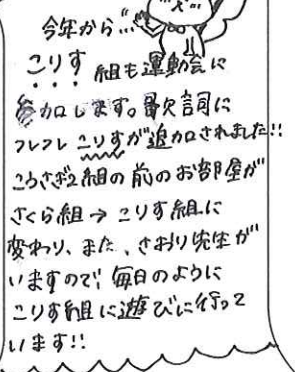 今年から"
こりす組も運動会に
参加します。歌詞に
フレフレこりすが追加されました!!
こうさぎ2組の前のお部屋が
さくら組→こりす組に
変わり、また、さおり先生が
いますので、毎日のように
こりす組に遊びに行って
います!!